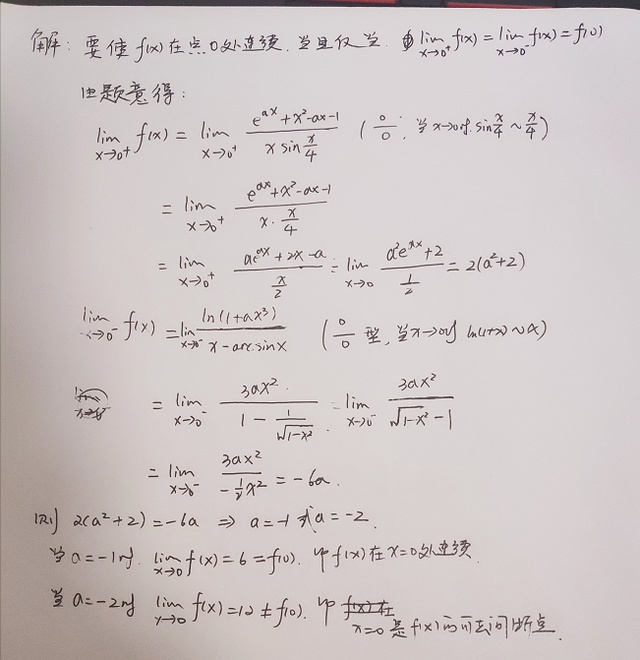 解: 要使f(x)在点0处连续,当且仅当, lim x→0⁺ f(x) = lim x→0⁻ f(x) = f(0)
由题意得:
lim x→0⁺ f(x) = lim x→0⁺ (e^{ax}+x²-ax-1)/(x sin x/4) (0/0, 当x→0时, sin x/4 ~ x/4)
= lim x→0⁺ (e^{ax}+x²-ax-1)/(x·x/4)
= lim x→0⁺ (ae^{ax}+2x-a)/(x/2) = lim x→0 (a²e^{ax}+2)/(1/2) = 2(a²+2)
lim x→0⁻ f(x) = lim x→0⁻ ln(1+ax³)/(x-arcsinx) (0/0型, 当x→0时 ln(1+x)~x)
= lim x→0⁻ 3ax²/(1-1/√(1-x²)) = lim x→0⁻ 3ax²/(√(1-x²)-1)
= lim x→0⁻ 3ax²/(-½x²) = -6a.
则 2(a²+2)=-6a ⇒ a=-1或a=-2.
当a=-1时, lim x→0 f(x)=6=f(0). 即f(x)在x=0处连续.
当a=-2时 lim x→0 f(x)=12≠f(0). 即
x=0是f(x)的可去间断点.